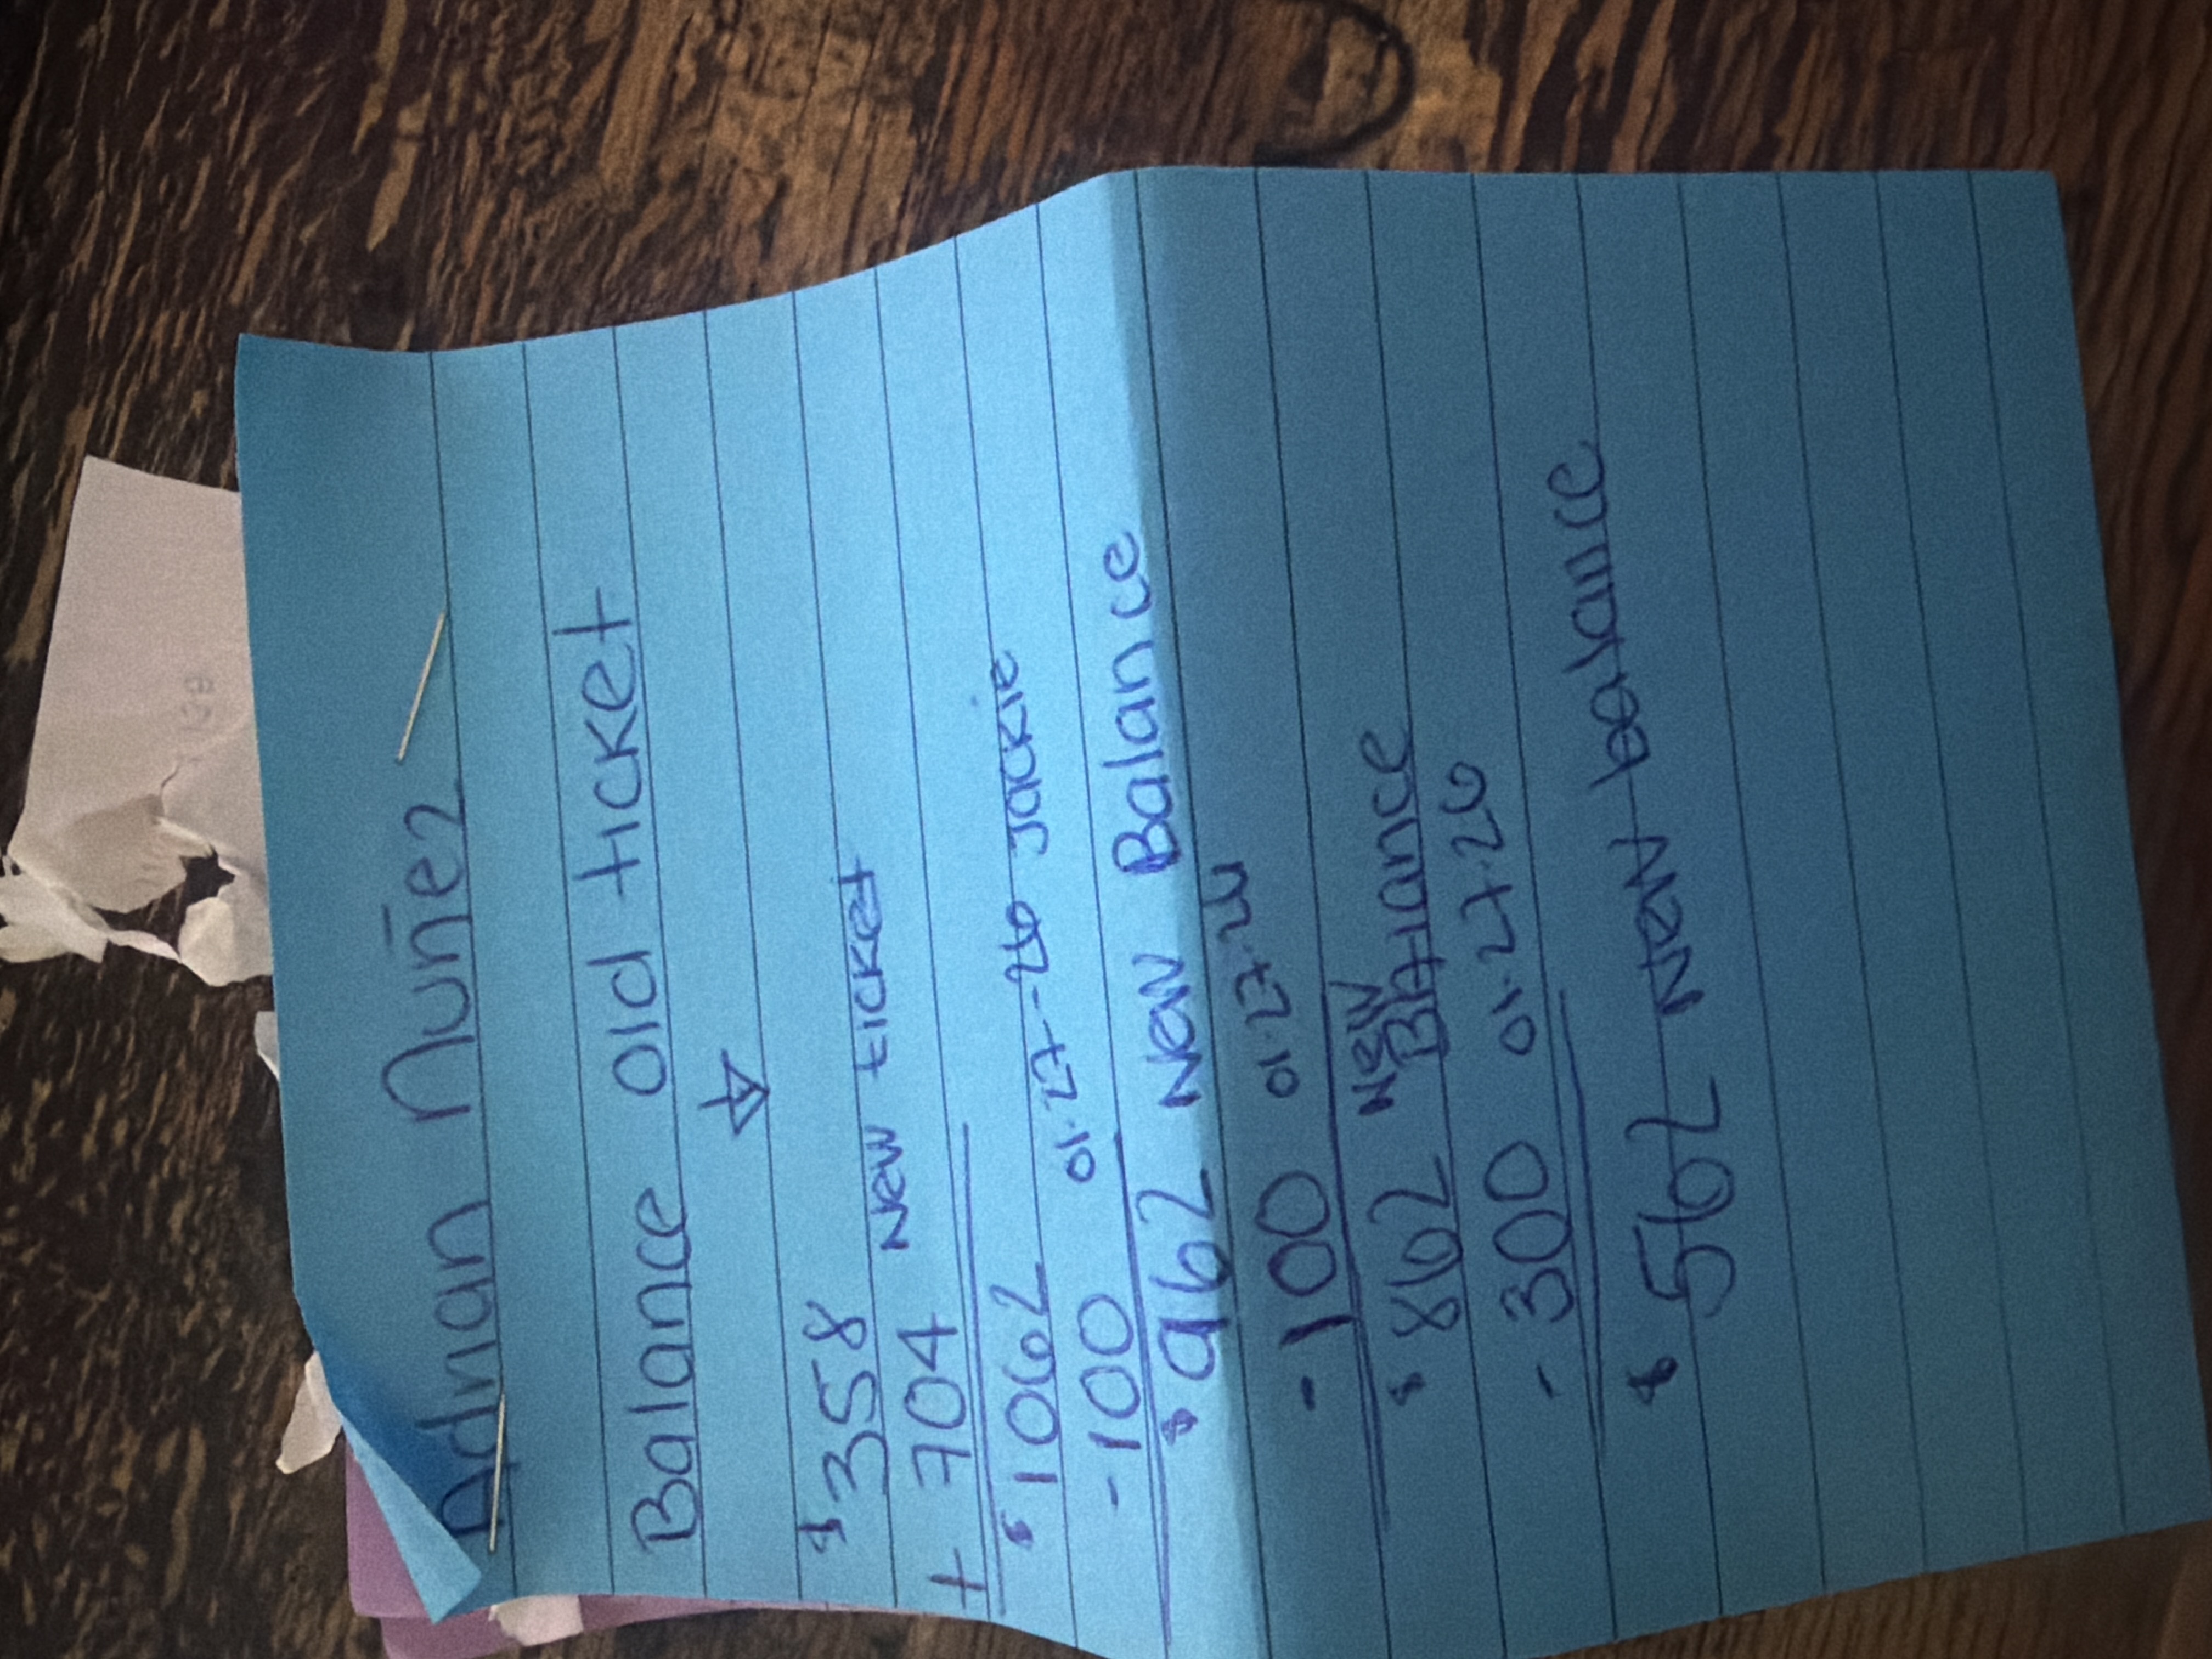 Adrian Nuñez
Balance old ticket
$358
+ 704 New ticket
$1062
-100 01-27-26 Jackie
$962 New Balance
-100 01.27.26
$862 New Balance
-300 01.27.26
$562 New balance